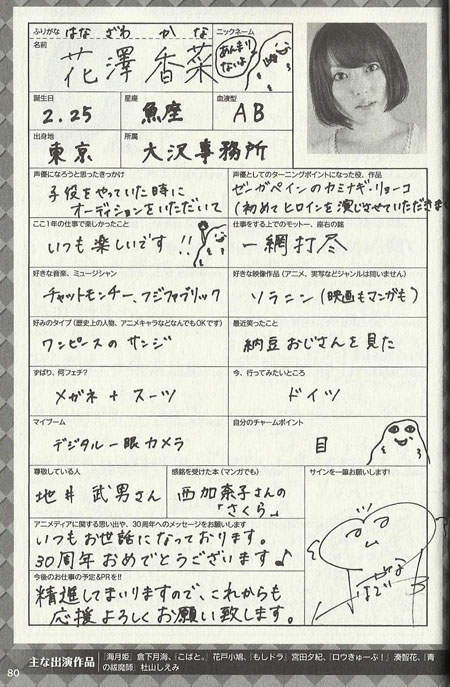 ふりがな はなざわ かな
ニックネーム
名前
花澤香菜
あんまりないよ
誕生日
星座
血液型
2.25
魚座
AB
出身地
所属
東京
大沢事務所
声優になろうと思ったきっかけ
子役をやっていた時に
オーディションをいただいて
声優としてのターニングポイントになった役、作品
ゼーガペインのカミナギ・リョーコ
(初めてヒロインを演じさせていただきま
ここ1年の仕事で楽しかったこと
いつも楽しいです!!
仕事をする上でのモットー、座右の銘
一網打尽
好きな音楽、ミュージシャン
チャットモンチー、フジファブリック
好きな映像作品(アニメ、実写などジャンルは問いません)
ソラニン(映画もマンガも)
好みのタイプ(歴史上の人物、アニメキャラなどなんでもOKです)
ワンピースのサンジ
最近笑ったこと
納豆おじさんを見た
ずばり、何フェチ?
メガネ+スーツ
今、行ってみたいところ
ドイツ
マイブーム
デジタル一眼カメラ
自分のチャームポイント
目
尊敬している人
地井武男さん
感銘を受けた本(マンガでも)
西加奈子さんの
「さくら」
サインを一筆お願いします!
アニメディアに関する思い出や、30周年へのメッセージをお願いします
いつもお世話になっております。
30周年おめでとうございます♪
今後のお仕事の予定&PRを!!
精進してまいりますので、これからも
応援よろしくお願い致します。
主な出演作品
『海月姫』倉下月海、『こばと。』花戸小鳩、『もしドラ』宮田夕紀、『ロウきゅーぶ!』湊智花、『青
の祓魔師』杜山しえみ
80